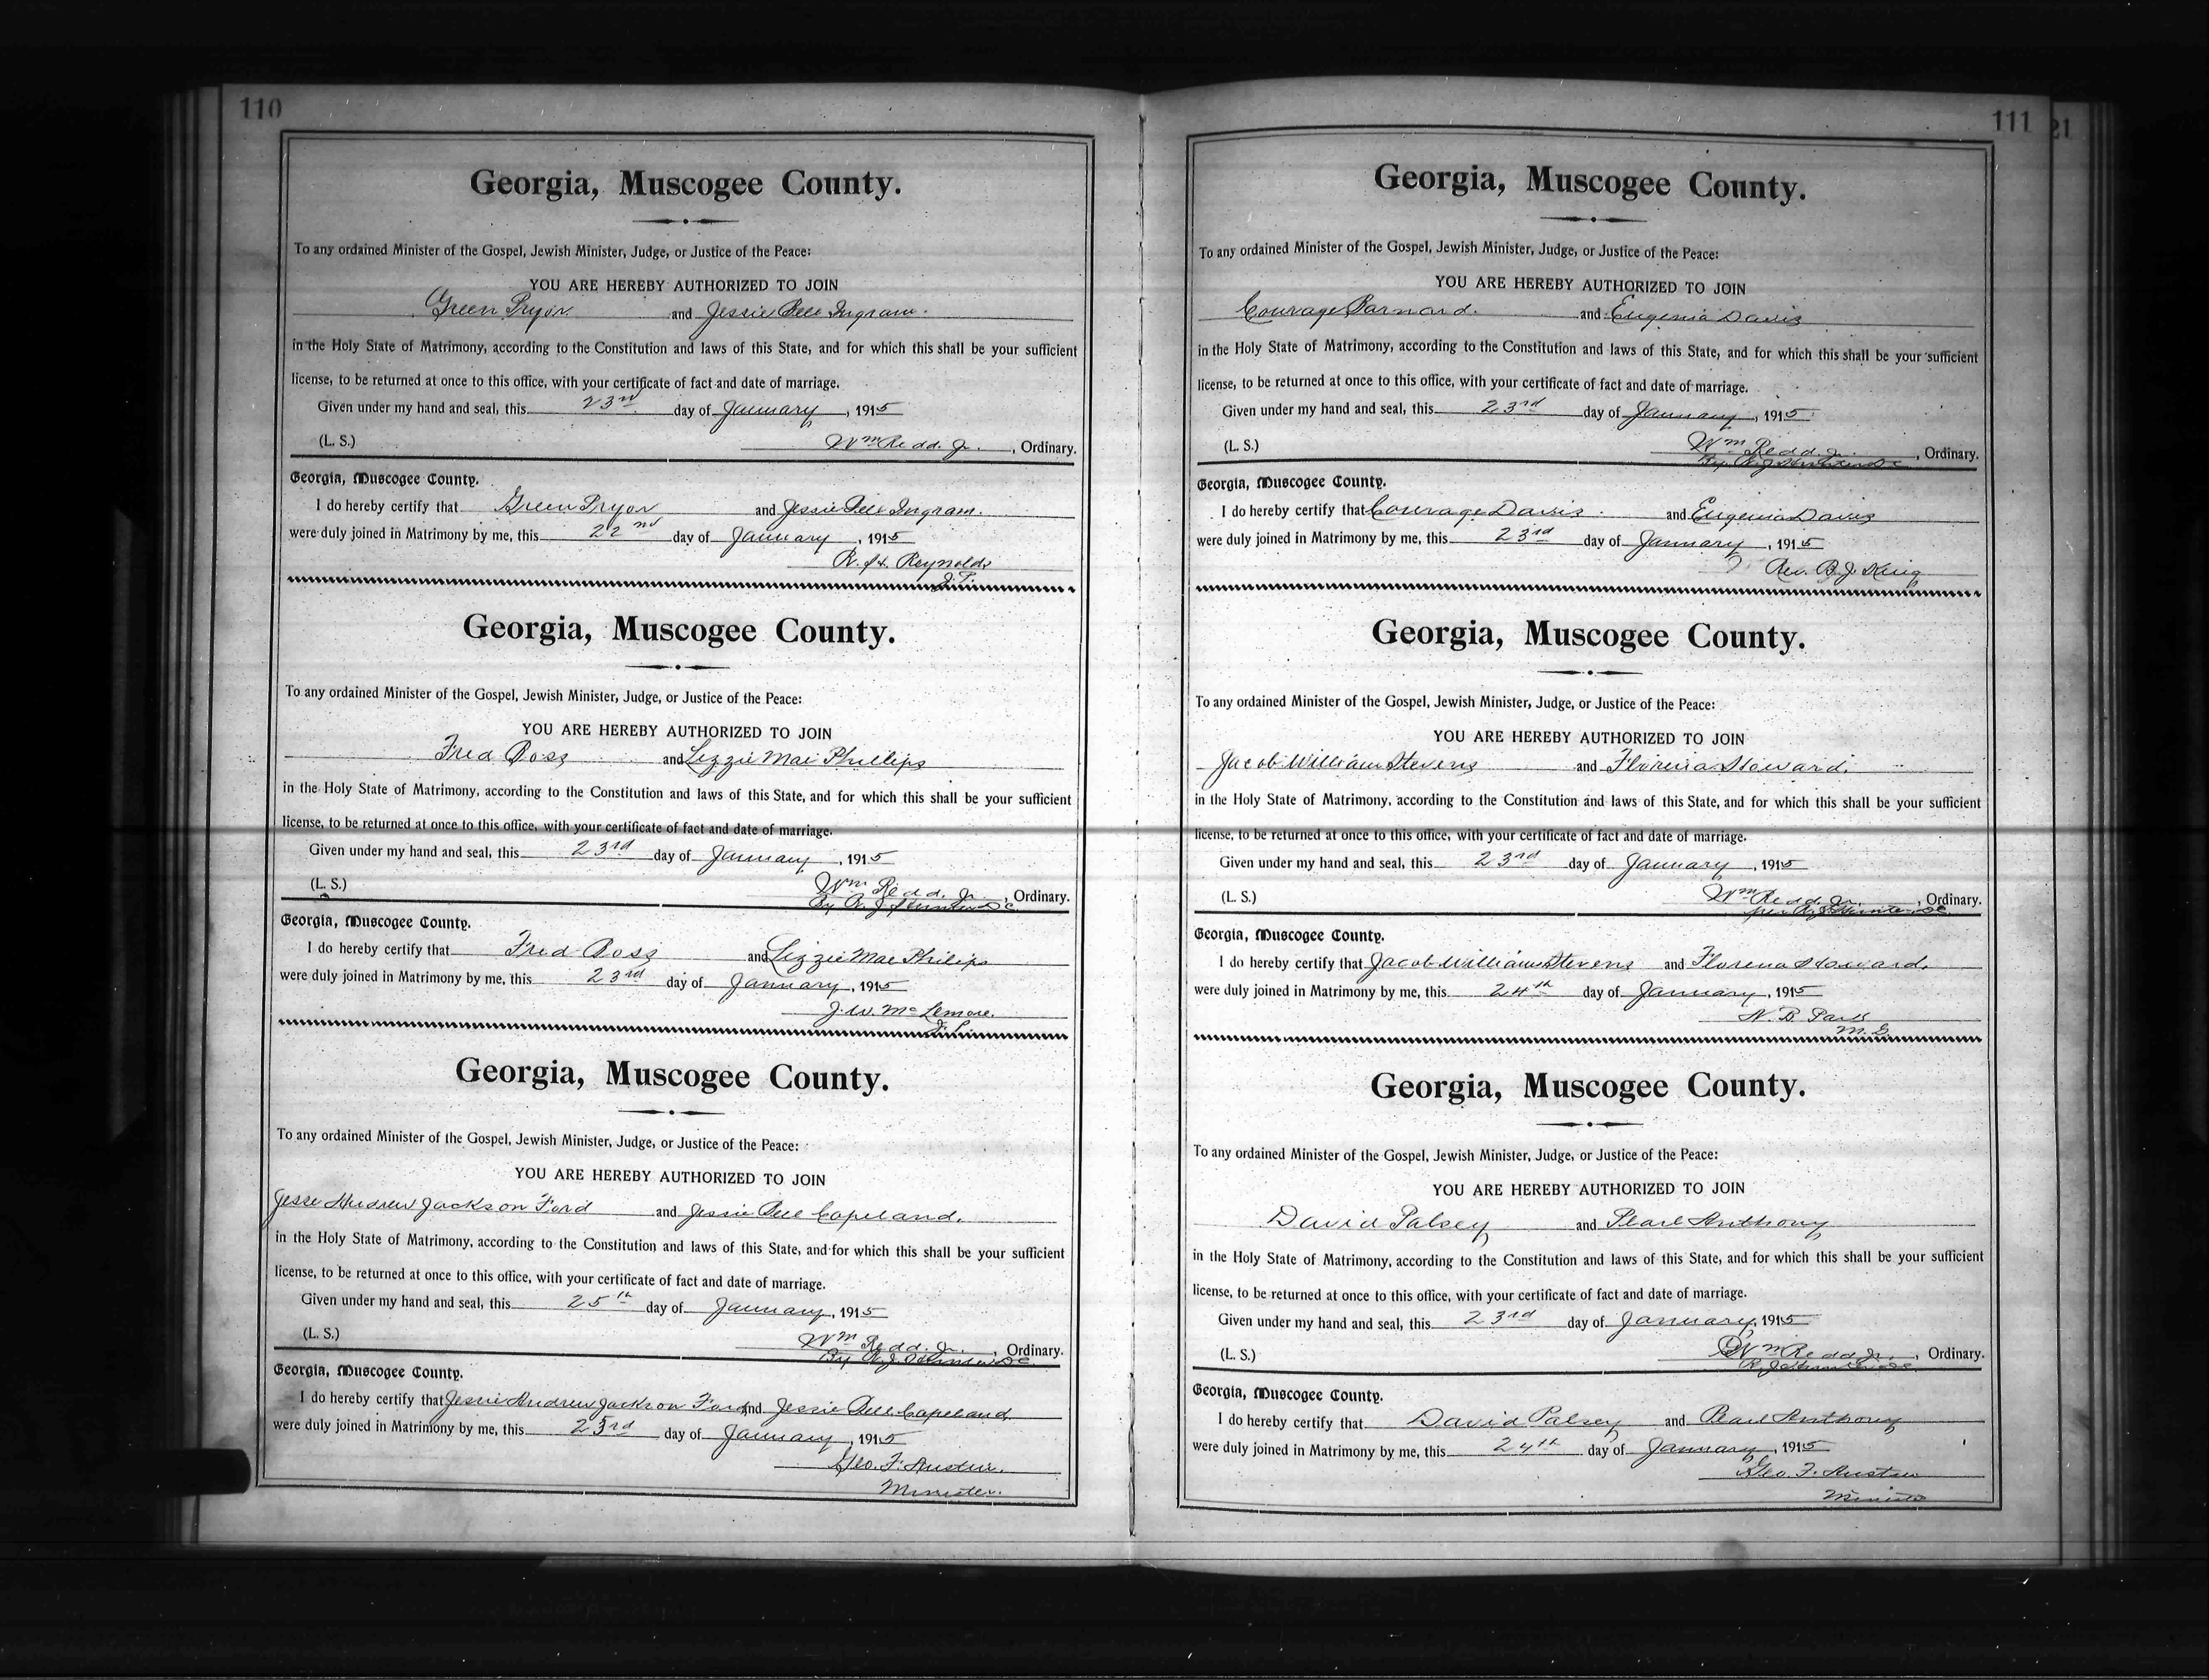 110
Georgia, Muscogee County.
To any ordained Minister of the Gospel, Jewish Minister, Judge, or Justice of the Peace:
YOU ARE HEREBY AUTHORIZED TO JOIN
Green Pryor and Jessie Bell Ingram.
in the Holy State of Matrimony, according to the Constitution and laws of this State, and for which this shall be your sufficient
license, to be returned at once to this office, with your certificate of fact and date of marriage.
Given under my hand and seal, this 23rd day of January, 1915
(L. S.) Wm Redd. Jr., Ordinary.
Georgia, Muscogee County.
I do hereby certify that Green Pryor and Jessie Bell Ingram.
were duly joined in Matrimony by me, this 22nd day of January, 1915
R. H. Reynolds
J.P.
Georgia, Muscogee County.
To any ordained Minister of the Gospel, Jewish Minister, Judge, or Justice of the Peace:
YOU ARE HEREBY AUTHORIZED TO JOIN
Fred Ross and Lizzie Mai Phillips
in the Holy State of Matrimony, according to the Constitution and laws of this State, and for which this shall be your sufficient
license, to be returned at once to this office, with your certificate of fact and date of marriage.
Given under my hand and seal, this 23rd day of January, 1915
(L. S.) Wm Redd. Jr., Ordinary.
By R. J. Hunter D C
Georgia, Muscogee County.
I do hereby certify that Fred Ross and Lizzie Mae Philips
were duly joined in Matrimony by me, this 23rd day of January, 1915
J. W. McLemore.
J. P.
Georgia, Muscogee County.
To any ordained Minister of the Gospel, Jewish Minister, Judge, or Justice of the Peace:
YOU ARE HEREBY AUTHORIZED TO JOIN
Jesse Andrew Jackson Ford and Jessie Bell Copeland.
in the Holy State of Matrimony, according to the Constitution and laws of this State, and for which this shall be your sufficient
license, to be returned at once to this office, with your certificate of fact and date of marriage.
Given under my hand and seal, this 25th day of January, 1915
(L. S.) Wm Redd. Jr., Ordinary.
By R. J. Hunter D C
Georgia, Muscogee County.
I do hereby certify that Jessie Andrew Jackson Ford and Jessie Bell Copeland
were duly joined in Matrimony by me, this 23rd day of January, 1915
Geo. F. Austin.
Minister.
111
21
Georgia, Muscogee County.
To any ordained Minister of the Gospel, Jewish Minister, Judge, or Justice of the Peace:
YOU ARE HEREBY AUTHORIZED TO JOIN
Courage Barnard. and Eugenia Davis
in the Holy State of Matrimony, according to the Constitution and laws of this State, and for which this shall be your sufficient
license, to be returned at once to this office, with your certificate of fact and date of marriage.
Given under my hand and seal, this 23rd day of January, 1915
(L. S.) Wm Redd. Jr., Ordinary.
By R. J. Hunter D C
Georgia, Muscogee County.
I do hereby certify that Courage Davis. and Eugenia Davis
were duly joined in Matrimony by me, this 23rd day of January, 1915
Rev. B. J. King
Georgia, Muscogee County.
To any ordained Minister of the Gospel, Jewish Minister, Judge, or Justice of the Peace:
YOU ARE HEREBY AUTHORIZED TO JOIN
Jacob William Stevens and Florena Howard.
in the Holy State of Matrimony, according to the Constitution and laws of this State, and for which this shall be your sufficient
license, to be returned at once to this office, with your certificate of fact and date of marriage.
Given under my hand and seal, this 23rd day of January, 1915
(L. S.) Wm Redd. Jr., Ordinary.
per R. J. Hunter D C
Georgia, Muscogee County.
I do hereby certify that Jacob William Stevens and Florena Howard.
were duly joined in Matrimony by me, this 24th day of January, 1915
N. B.
M. G.
Georgia, Muscogee County.
To any ordained Minister of the Gospel, Jewish Minister, Judge, or Justice of the Peace:
YOU ARE HEREBY AUTHORIZED TO JOIN
David Palsey and Pearl Anthony
in the Holy State of Matrimony, according to the Constitution and laws of this State, and for which this shall be your sufficient
license, to be returned at once to this office, with your certificate of fact and date of marriage.
Given under my hand and seal, this 23rd day of January, 1915
(L. S.) Wm Redd Jr., Ordinary.
R. J. Hunter D C
Georgia, Muscogee County.
I do hereby certify that David Palsey and Pearl Anthony
were duly joined in Matrimony by me, this 24th day of January, 1915
Geo. F. Austin
Minister